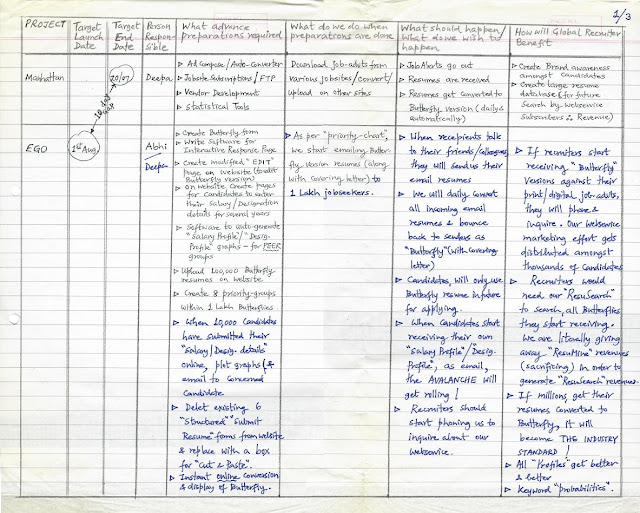 1/3
PROJECT
Target
Launch
Date
Target
End
Date
Person
Respon-
sible
What advance
preparations required
What do we do when
preparations are done
What should happen/
What do we wish to
happen
How will Global Recruiter
Benefit
Manhattan
20/07
Deepa
▷ Ad Compose/Auto-Converter
▷ Jobsite Subscriptions/FTP
▷ Vendor Development
▷ Statistical Tools
Download job-advts from
various jobsites/convert/
upload on other sites
▷ Job Alerts go out
▷ Resumes are received
▷ Resumes get converted to
Butterfly version (daily &
automatically)
▷ Create Brand awareness
amongst Candidates
▷ Create large resume
database (for future
Search by Webservice
Subscribers ∴ Revenue)
10 day
gap
EGO
1st Aug
Abhi
Deepa
▷ Create Butterfly form
▷ Write Software for
Interactive Response Page
▷ Create modified "EDIT"
page on website (to edit
Butterfly version)
▷ On website Create pages
for Candidates to enter
their Salary/Designation
details for several years
▷ Software to auto-generate
"Salary Profile"/"Desig.
Profile" graphs - for PEER
groups
▷ Upload 100,000 Butterfly
resumes on website
▷ Create 8 priority-groups
within 1 Lakh Butterflies
▷ When 10,000 Candidates
have submitted their
"Salary/Desig. details"
online, plot graphs (&
email to Concerned
Candidate
▷ Delet existing 6
"Structured" "Submit
Resume" forms from website
& replace with a box
for "Cut & Paste".
▷ Instant online conversion
& display of Butterfly.
▷ As per "priority-chart",
we start emailing Butter-
fly version resumes (along
with covering letter) to
1 Lakh jobseekers.
▷ When recepients talk
to their friends/colleagues,
they will send us their
email resumes
▷ We will daily convert
all incoming email
resumes & bounce
back to senders as
"Butterfly" (with covering
letter)
▷ Candidates, will only use
Butterfly resume in future
for applying.
▷ When Candidates start
receiving their own
"Salary Profile"/Desig.
Profile", as email,
the AVALANCHE will
get rolling!
▷ Recruiters should
start phoning us to
inquire about our
Webservice.
▷ If recruiters start
receiving "Butterfly"
Versions against their
print/digital job-advts,
they will phone &
inquire. Our Webservice
marketing effort gets
distributed amongst
thousands of Candidates
▷ Recruiters would
need our "ResuSearch"
to search, all Butterflies
they start receiving.
We are literally giving
away "ResuMine" revenues
(sacrificing) in order to
generate "ResuSearch" revenues
▷ If millions, get their
resumes converted to
Butterfly, it will
become THE INDUSTRY
STANDARD!
▷ All "Profiles" get better
& better
▷ Keyword "probabilities".